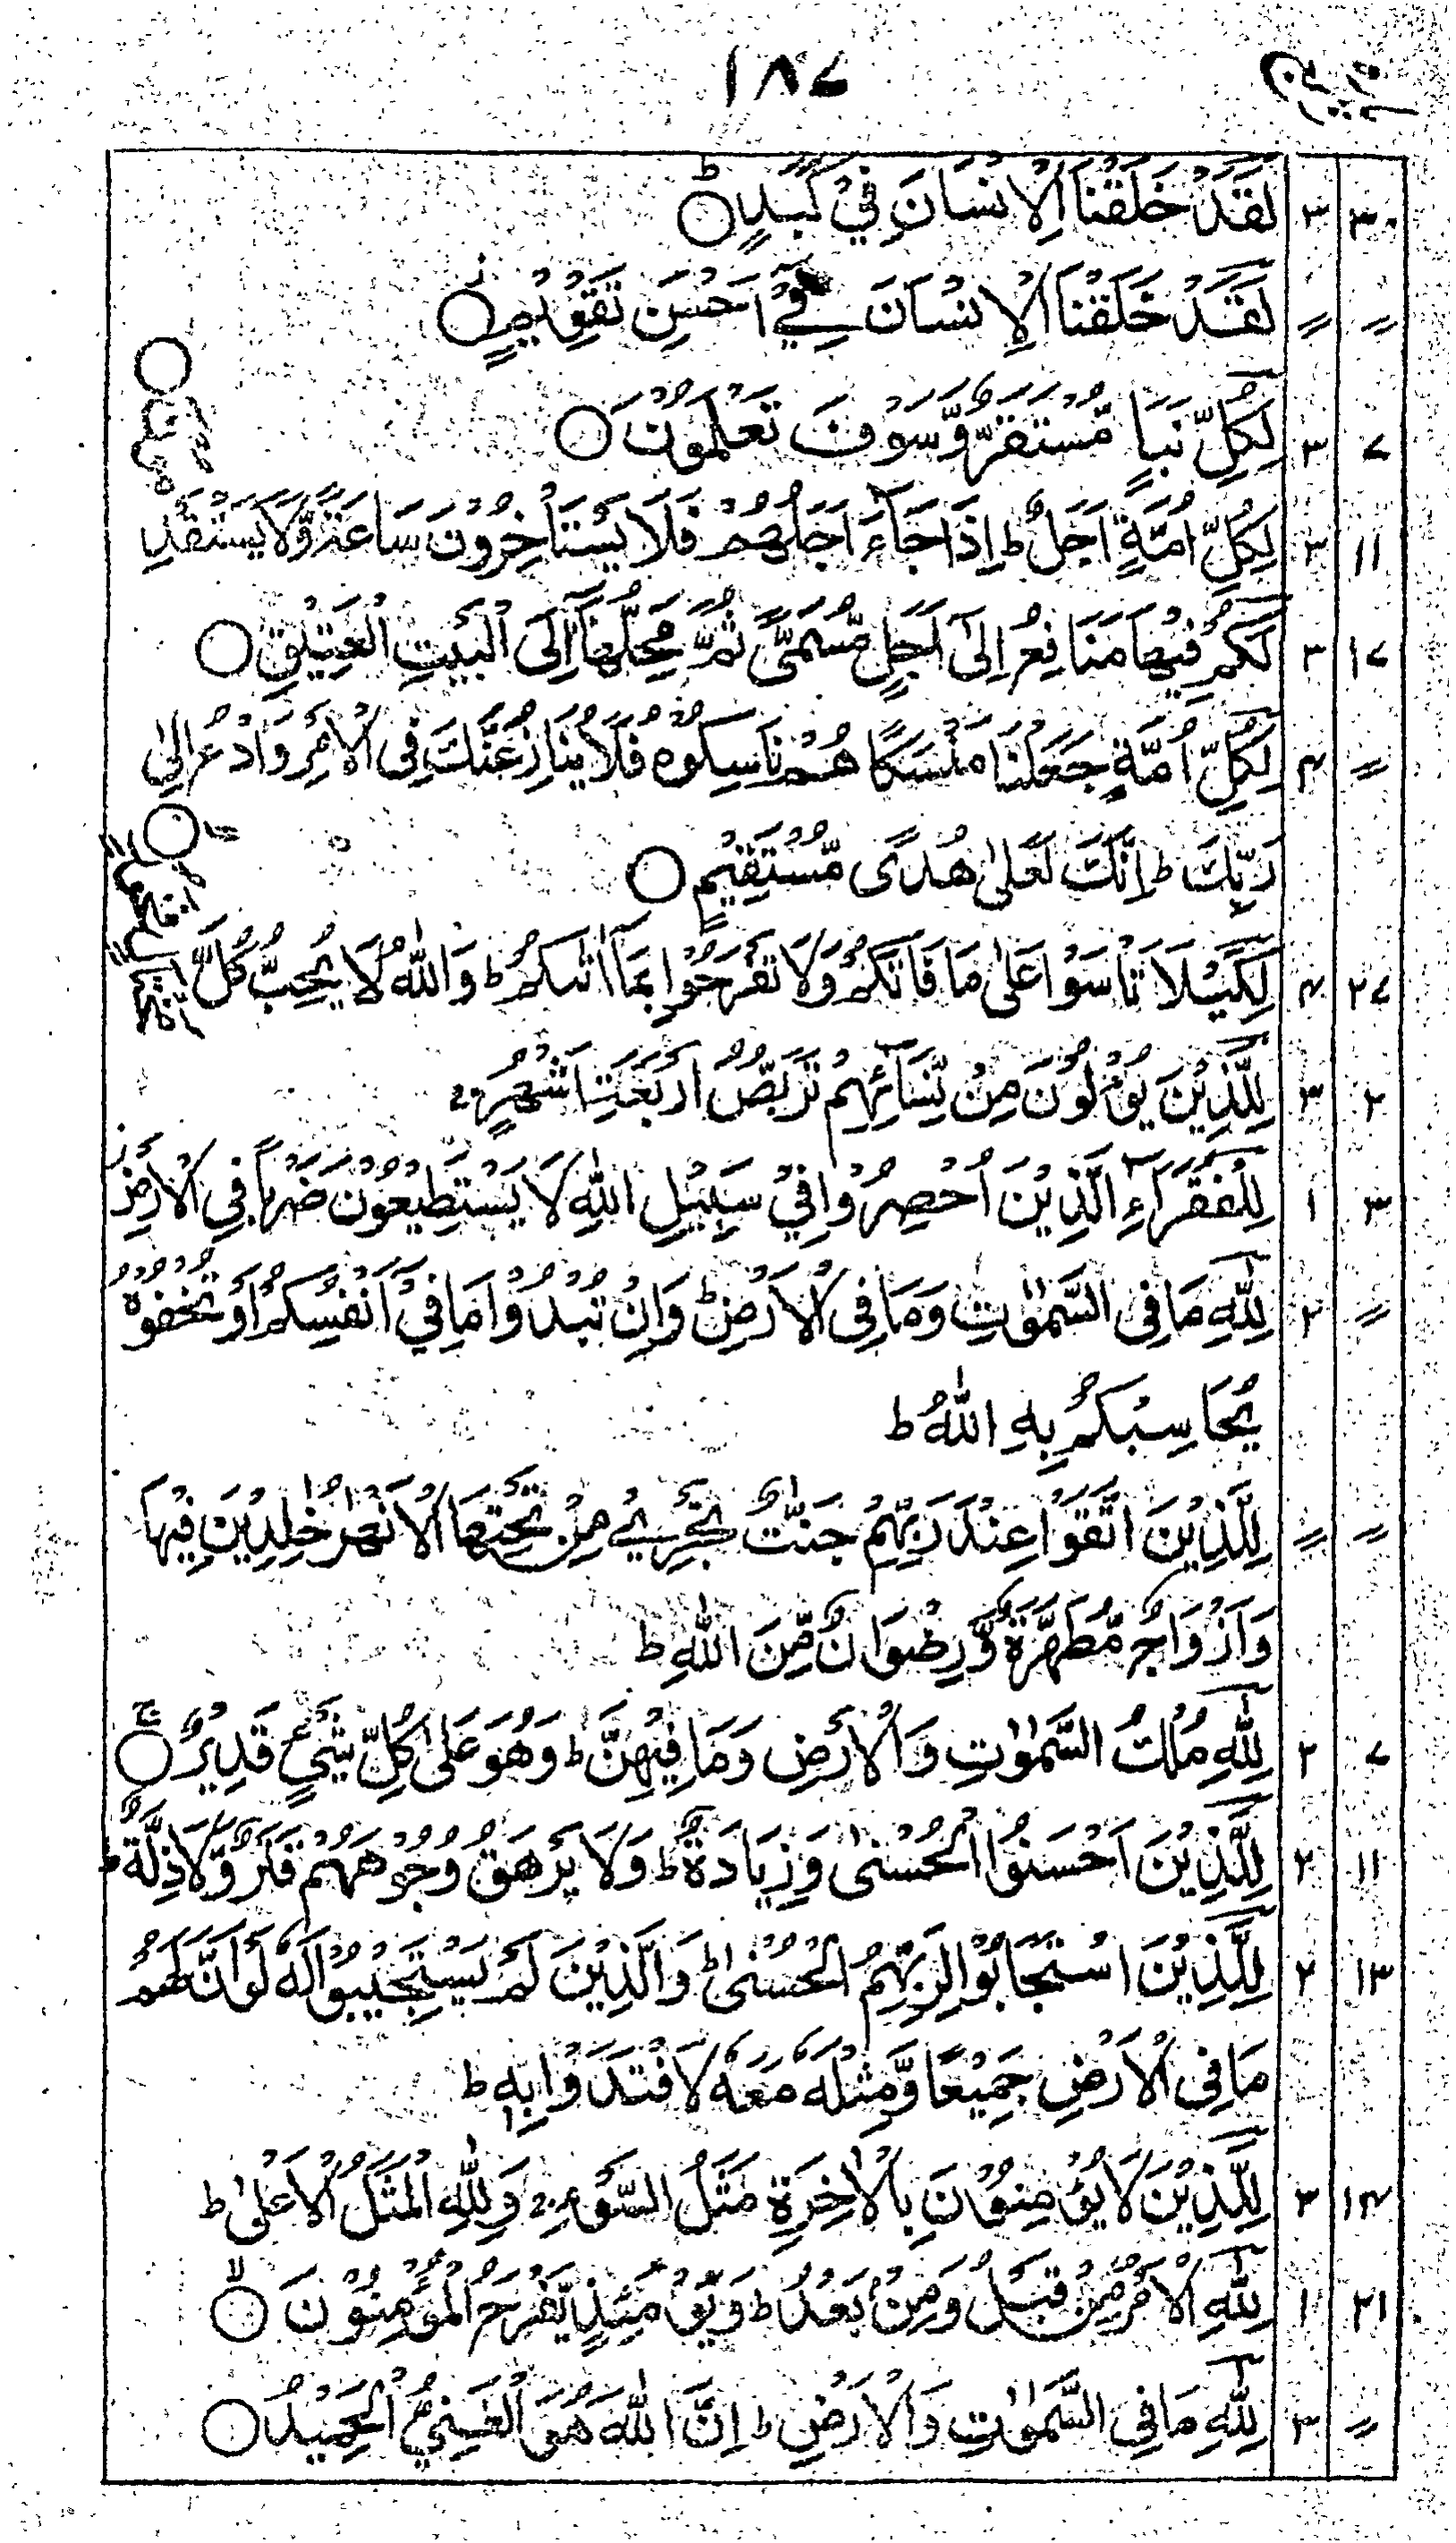 ۱۸۷
۳۰ ۳ لَقَدْ خَلَقْنَا الْاِنْسَانَ فِيْ كَبَدٍ ؕ○
〃 〃 لَقَدْ خَلَقْنَا الْاِنْسَانَ فِيْ اَحْسَنِ تَقْوِيْمٍ ز○
۷ ۳ لِكُلِّ نَبَاٍ مُّسْتَقَرٌّ وَّسَوْفَ تَعْلَمُوْنَ ○
۱۱ ۳ لِكُلِّ اُمَّةٍ اَجَلٌ ط اِذَا جَآءَ اَجَلُهُمْ فَلَا يَسْتَاْخِرُوْنَ سَاعَةً وَّلَا يَسْتَقْدِ
مُوْنَ ○
۱۷ ۳ لَكُمْ فِيْهَا مَنَافِعُ اِلٰٓى اَجَلٍ مُّسَمًّى ثُمَّ مَحِلُّهَآ اِلَى الْبَيْتِ الْعَتِيْقِ ○
〃 ۴ لِكُلِّ اُمَّةٍ جَعَلْنَا مَنْسَكًا هُمْ نَاسِكُوْهُ فَلَا يُنَازِعُنَّكَ فِى الْاَمْرِ وَادْعُ اِلٰى
رَبِّكَ ط اِنَّكَ لَعَلٰى هُدًى مُّسْتَقِيْمٍ ○
۲۷ ۴ لِكَيْلَا تَاْسَوْا عَلٰى مَا فَاتَكُمْ وَلَا تَفْرَحُوْا بِمَآ اٰتٰىكُمْ ط وَاللّٰهُ لَا يُحِبُّ كُلَّ
۲ ۳ لِلَّذِيْنَ يُؤْلُوْنَ مِنْ نِّسَآئِهِمْ تَرَبُّصُ اَرْبَعَةِ اَشْهُرٍ ج
۳ ۱ لِلْفُقَرَآءِ الَّذِيْنَ اُحْصِرُوْا فِيْ سَبِيْلِ اللّٰهِ لَا يَسْتَطِيْعُوْنَ ضَرْبًا فِى الْاَرْضِ ز
〃 ۲ لِلّٰهِ مَا فِى السَّمٰوٰتِ وَمَا فِى الْاَرْضِ ط وَاِنْ تُبْدُوْا مَا فِيْٓ اَنْفُسِكُمْ اَوْ تُخْفُوْهُ
يُحَاسِبْكُمْ بِهِ اللّٰهُ ط
〃 〃 لِلَّذِيْنَ اتَّقَوْا عِنْدَ رَبِّهِمْ جَنّٰتٌ تَجْرِيْ مِنْ تَحْتِهَا الْاَنْهٰرُ خٰلِدِيْنَ فِيْهَا
وَاَزْوَاجٌ مُّطَهَّرَةٌ وَّرِضْوَانٌ مِّنَ اللّٰهِ ط
۷ ۲ لِلّٰهِ مُلْكُ السَّمٰوٰتِ وَالْاَرْضِ وَمَا فِيْهِنَّ ط وَهُوَ عَلٰى كُلِّ شَيْءٍ قَدِيْرٌ ○
۱۱ ۲ لِلَّذِيْنَ اَحْسَنُوا الْحُسْنٰى وَزِيَادَةٌ ط وَلَا يَرْهَقُ وُجُوْهَهُمْ قَتَرٌ وَّلَا ذِلَّةٌ ط
۱۳ ۲ لِلَّذِيْنَ اسْتَجَابُوْا لِرَبِّهِمُ الْحُسْنٰى ط وَالَّذِيْنَ لَمْ يَسْتَجِيْبُوْا لَهٗ لَوْ اَنَّ لَهُمْ
مَا فِى الْاَرْضِ جَمِيْعًا وَّمِثْلَهٗ مَعَهٗ لَافْتَدَوْا بِهٖ ط
۱۴ ۳ لِلَّذِيْنَ لَا يُؤْمِنُوْنَ بِالْاٰخِرَةِ مَثَلُ السَّوْءِ ج وَلِلّٰهِ الْمَثَلُ الْاَعْلٰى ط
۲۱ ۱ لِلّٰهِ الْاَمْرُ مِنْ قَبْلُ وَمِنْ بَعْدُ ط وَيَوْمَئِذٍ يَّفْرَحُ الْمُؤْمِنُوْنَ لا○
〃 ۳ لِلّٰهِ مَا فِى السَّمٰوٰتِ وَالْاَرْضِ ط اِنَّ اللّٰهَ هُوَ الْغَنِيُّ الْحَمِيْدُ ○